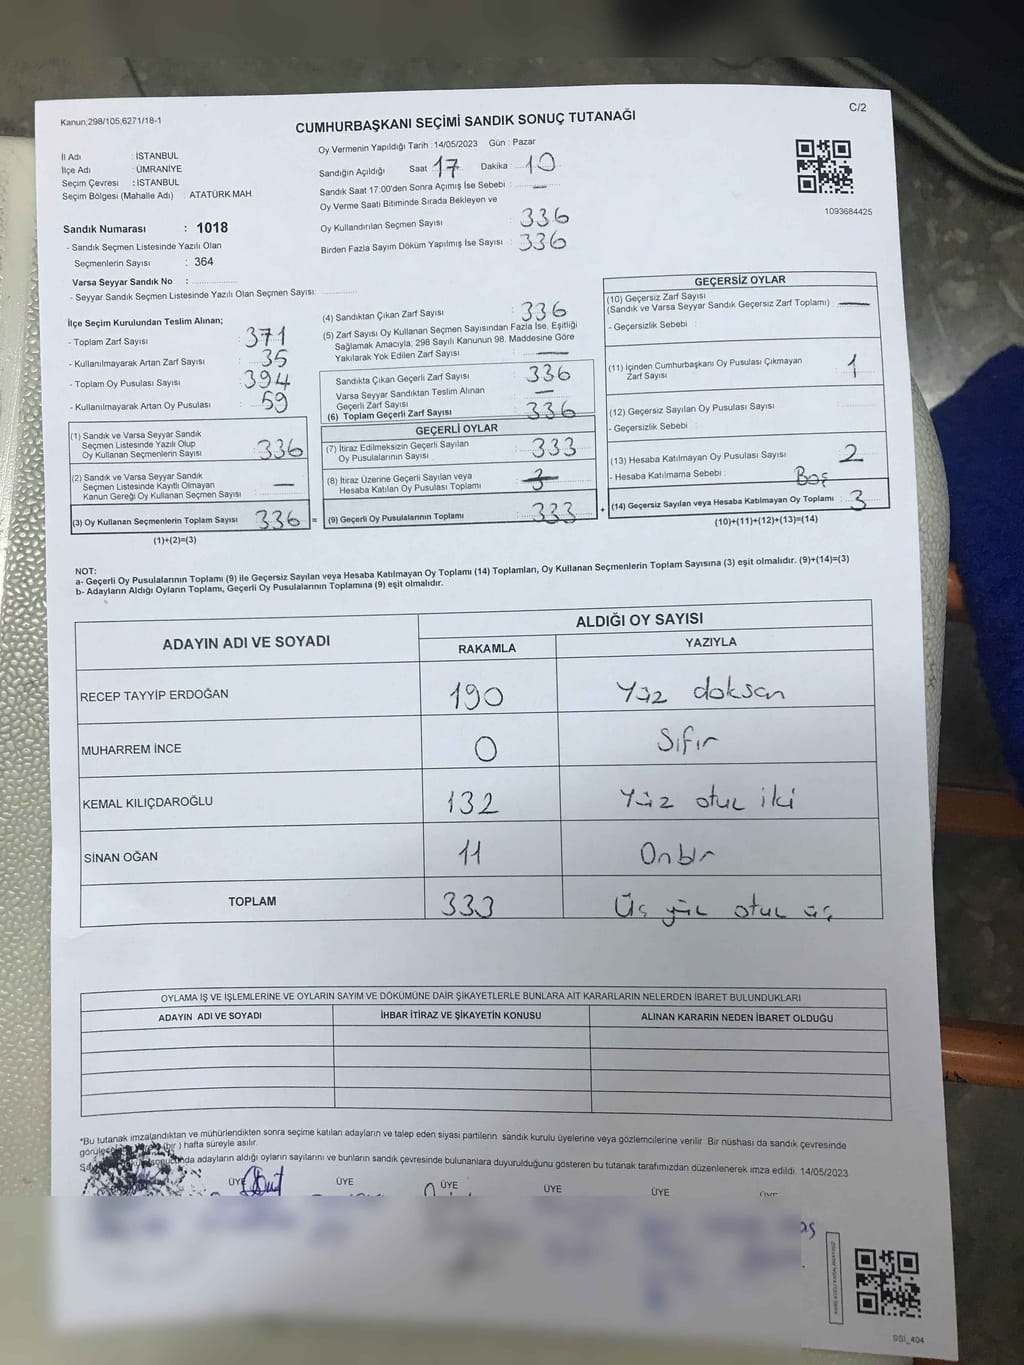 Kanun;298/105,6271/18-1
C/2
CUMHURBAŞKANI SEÇİMİ SANDIK SONUÇ TUTANAĞI
İl Adı : İSTANBUL
İlçe Adı : ÜMRANİYE
Seçim Çevresi : İSTANBUL
Seçim Bölgesi (Mahalle Adı) : ATATÜRK MAH.
Sandık Numarası : 1018
- Sandık Seçmen Listesinde Yazılı Olan
Seçmenlerin Sayısı : 364
Varsa Seyyar Sandık No :
- Seyyar Sandık Seçmen Listesinde Yazılı Olan Seçmen Sayısı:
Oy Vermenin Yapıldığı Tarih : 14/05/2023 Gün : Pazar
Sandığın Açıldığı Saat 17 Dakika : 10
Sandık Saat 17:00'den Sonra Açımış İse Sebebi : —
Oy Verme Saati Bitiminde Sırada Bekleyen ve
Oy Kullandırılan Seçmen Sayısı : 336
Birden Fazla Sayım Döküm Yapılmış İse Sayısı : 336
1093684425
İlçe Seçim Kurulundan Teslim Alınan;
- Toplam Zarf Sayısı : 371
- Kullanılmayarak Artan Zarf Sayısı : 35
- Toplam Oy Pusulası Sayısı : 394
- Kullanılmayarak Artan Oy Pusulası : 59
(1) Sandık ve Varsa Seyyar Sandık
Seçmen Listesinde Yazılı Olup
Oy Kullanan Seçmenlerin Sayısı : 336
(2) Sandık ve Varsa Seyyar Sandık
Seçmen Listesinde Kayıtlı Olmayan
Kanun Gereği Oy Kullanan Seçmen Sayısı : —
(3) Oy Kullanan Seçmenlerin Toplam Sayısı 336 =
(1)+(2)=(3)
(4) Sandıktan Çıkan Zarf Sayısı : 336
(5) Zarf Sayısı Oy Kullanan Seçmen Sayısından Fazla İse, Eşitliği
Sağlamak Amacıyla, 298 Sayılı Kanunun 98. Maddesine Göre
Yakılarak Yok Edilen Zarf Sayısı : —
Sandıkta Çıkan Geçerli Zarf Sayısı : 336
Varsa Seyyar Sandıktan Teslim Alınan
Geçerli Zarf Sayısı : —
(6) Toplam Geçerli Zarf Sayısı : 336
GEÇERLİ OYLAR
(7) İtiraz Edilmeksizin Geçerli Sayılan
Oy Pusulalarının Sayısı : 333
(8) İtiraz Üzerine Geçerli Sayılan veya
Hesaba Katılan Oy Pusulası Toplamı :
(9) Geçerli Oy Pusulalarının Toplamı : 333 +
GEÇERSİZ OYLAR
(10) Geçersiz Zarf Sayısı
(Sandık ve Varsa Seyyar Sandık Geçersiz Zarf Toplamı) : —
- Geçersizlik Sebebi :
(11) İçinden Cumhurbaşkanı Oy Pusulası Çıkmayan
Zarf Sayısı : 1
(12) Geçersiz Sayılan Oy Pusulası Sayısı :
- Geçersizlik Sebebi :
(13) Hesaba Katılmayan Oy Pusulası Sayısı : 2
- Hesaba Katılmama Sebebi : Boş
(14) Geçersiz Sayılan veya Hesaba Katılmayan Oy Toplamı : 3
(10)+(11)+(12)+(13)=(14)
NOT:
a- Geçerli Oy Pusulalarının Toplamı (9) ile Geçersiz Sayılan veya Hesaba Katılmayan Oy Toplamı (14) Toplamları, Oy Kullanan Seçmenlerin Toplam Sayısına (3) eşit olmalıdır. (9)+(14)=(3)
b- Adayların Aldığı Oyların Toplamı, Geçerli Oy Pusulalarının Toplamına (9) eşit olmalıdır.
ADAYIN ADI VE SOYADI
ALDIĞI OY SAYISI
RAKAMLA YAZIYLA
RECEP TAYYİP ERDOĞAN 190 Yüz doksan
MUHARREM İNCE 0 Sıfır
KEMAL KILIÇDAROĞLU 132 Yüz otuz iki
SİNAN OĞAN 11 Onbir
TOPLAM 333 Üç yüz otuz üç
OYLAMA İŞ VE İŞLEMLERİNE VE OYLARIN SAYIM VE DÖKÜMÜNE DAİR ŞİKAYETLERLE BUNLARA AİT KARARLARIN NELERDEN İBARET BULUNDUKLARI
ADAYIN ADI VE SOYADI İHBAR İTİRAZ VE ŞİKAYETİN KONUSU ALINAN KARARIN NEDEN İBARET OLDUĞU
*Bu tutanak imzalandıktan ve mühürlendikten sonra seçime katılan adayların ve talep eden siyasi partilerin sandık kurulu üyelerine veya gözlemcilerine verilir. Bir nüshası da sandık çevresinde
(bir) hafta süreyle asılır.
adayların aldığı oyların sayılarını ve bunların sandık çevresinde bulunanlara duyurulduğunu gösteren bu tutanak tarafımızdan düzenlenerek imza edildi. 14/05/2023
ÜYE ÜYE ÜYE ÜYE ÜYE ÜYE
SSI_404